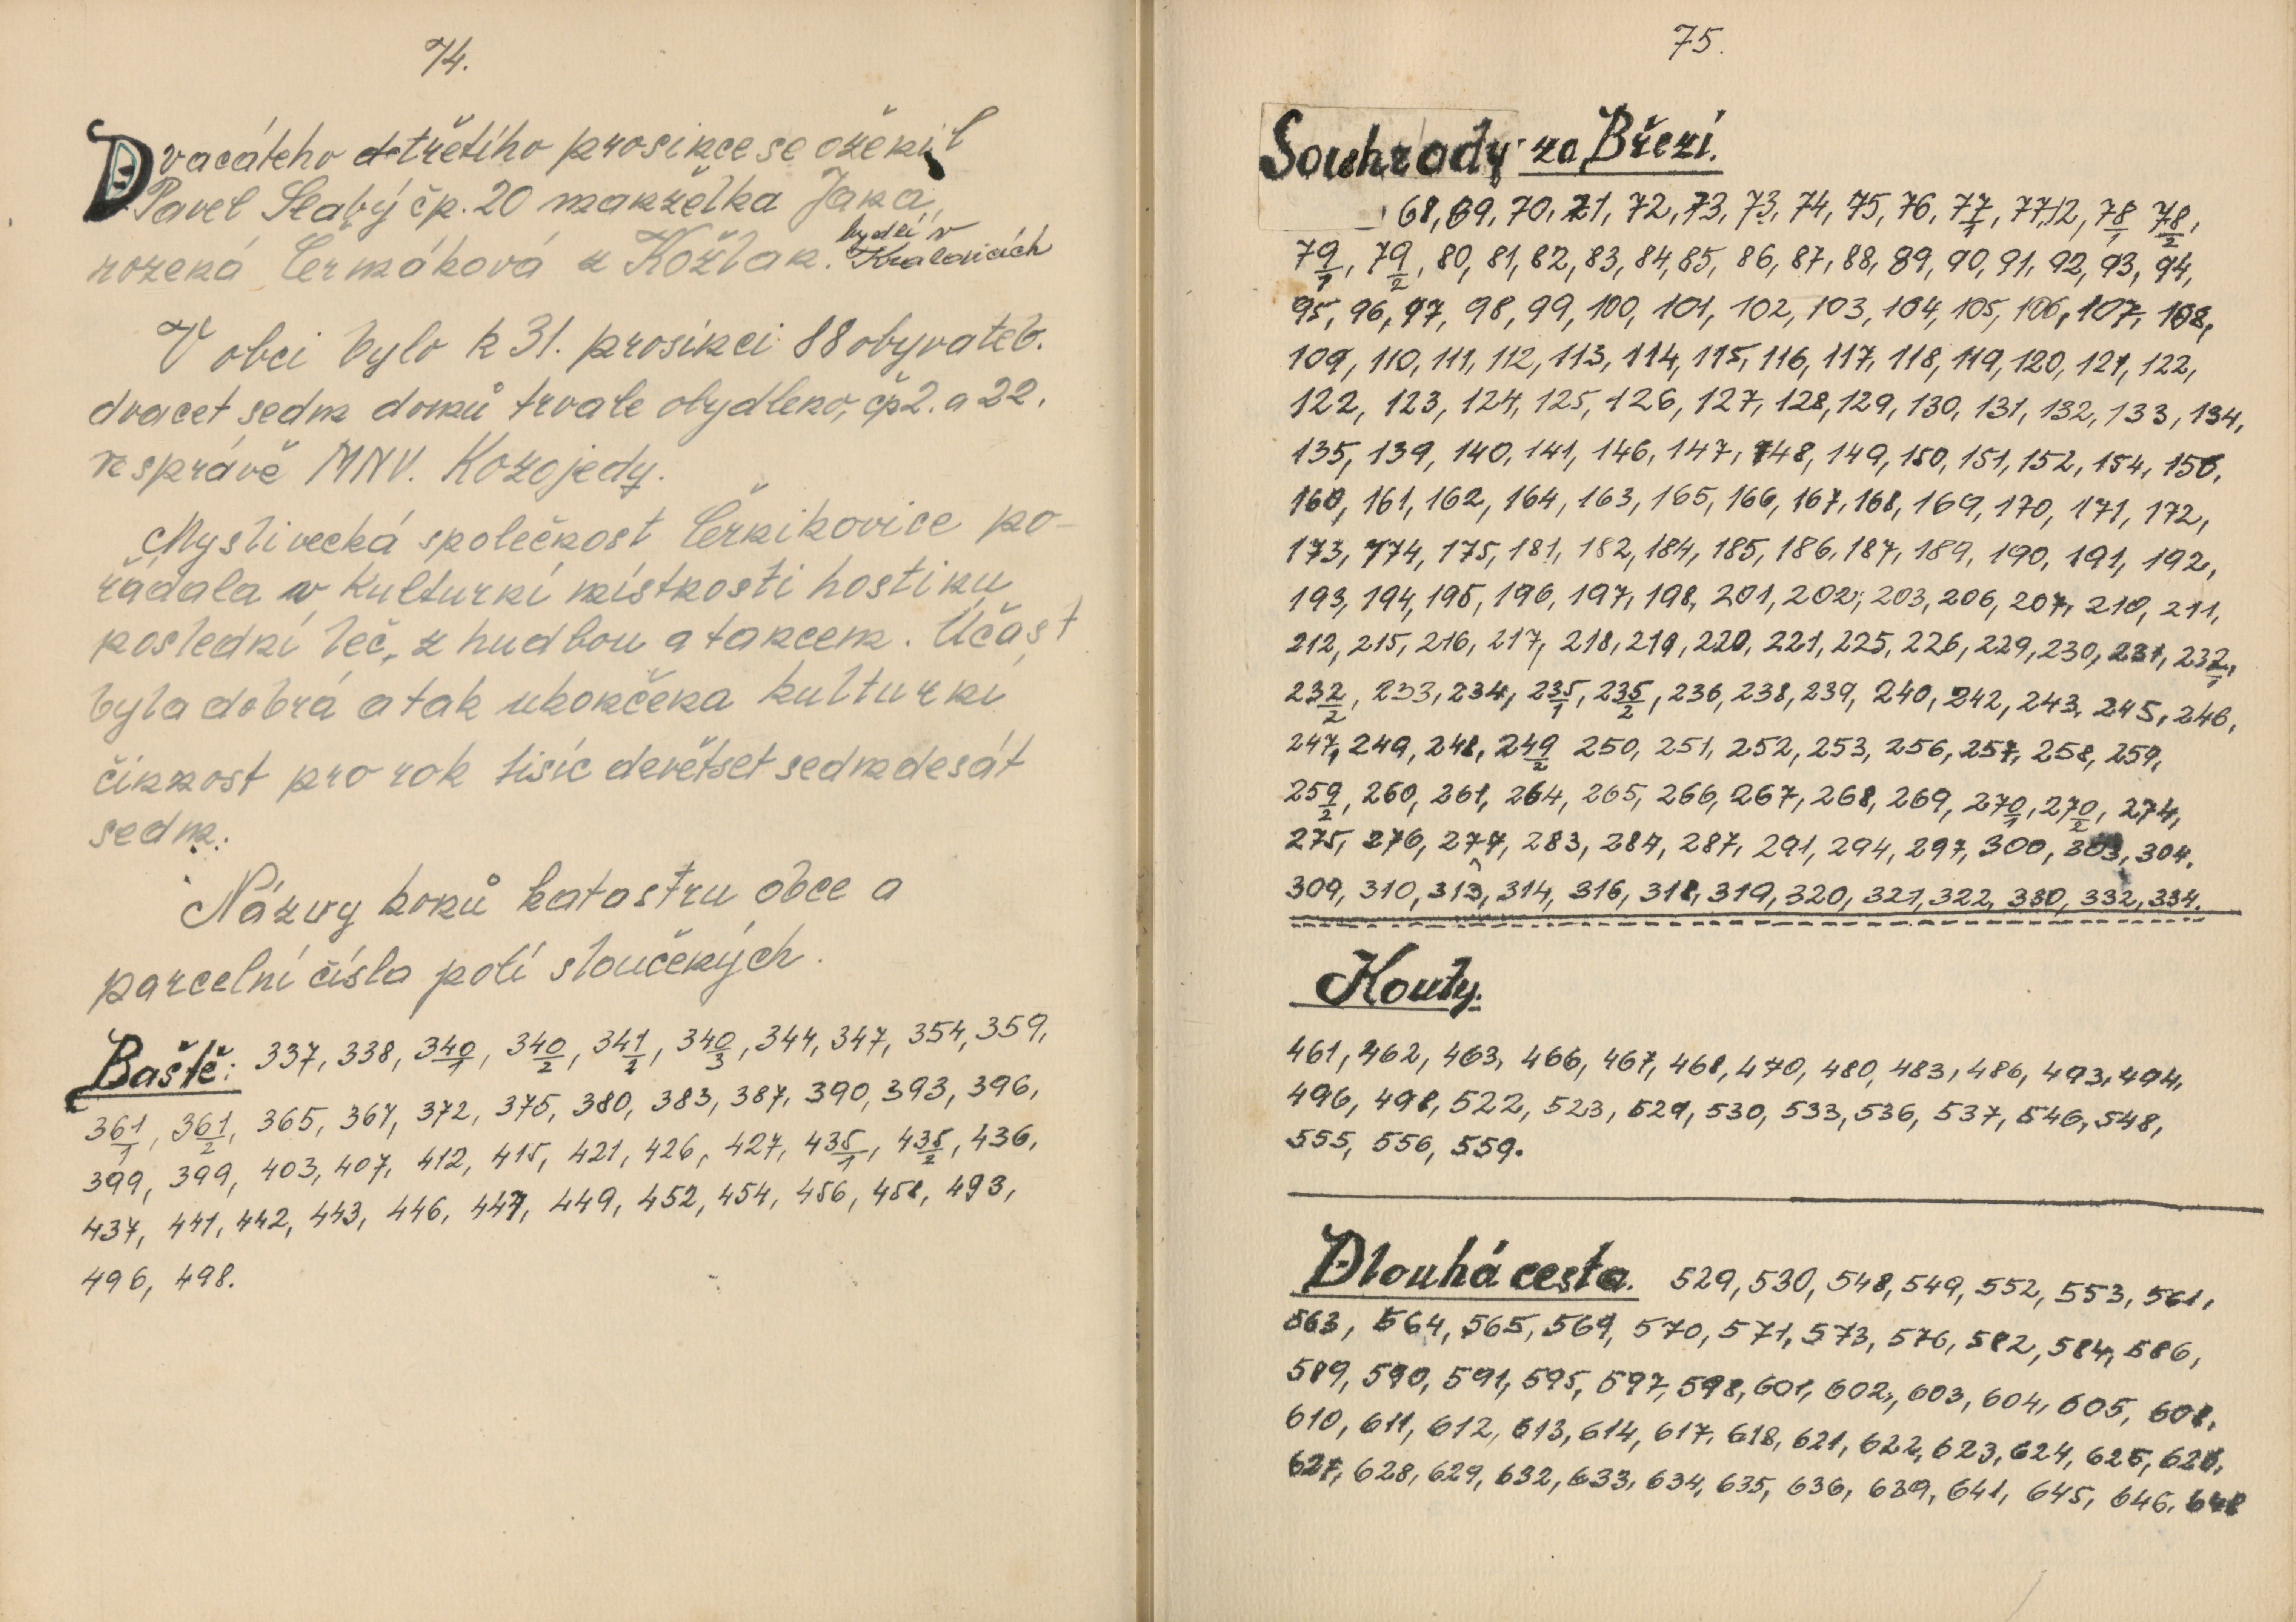 74.
Dvacáteho třetího prosince se oženil
Pavel Slabý čp. 20 manželka Jana,
rozená Čermáková z Kožlan. bydlí v Kralovicích
V obci bylo k 31. prosinci 88 obyvatel.
dvacet sedm domů trvale obydleno, čp 2. a 22.
ve správě MNV. Kozojedy.
Myslivecká společnost Černikovice po-
řádala v kulturní místnosti hostinu
poslední leč, z hudbou a tancem. Účast
byla dobrá a tak ukončena kulturní
činnost pro rok tisíc devětset sedmdesát
sedm.
Názvy honů katastru obce a
parcelní čísla polí sloučených.
Baště: 337, 338, 340/1, 340/2, 341/2, 340/3, 344, 347, 354, 359,
361/1, 361/2, 365, 367, 372, 375, 380, 383, 387, 390, 393, 396,
399, 399, 403, 407, 412, 415, 421, 426, 427, 435/1, 435/2, 436,
437, 441, 442, 443, 446, 447, 449, 452, 454, 456, 458, 493,
496, 498.
75.
Souhrady za Březí.
68, 69, 70, 71, 72, 73, 73, 74, 75, 76, 77/1, 77,12, 78/1 78/2,
79/1, 79/2, 80, 81, 82, 83, 84, 85, 86, 87, 88, 89, 90, 91, 92, 93, 94,
95, 96, 97, 98, 99, 100, 101, 102, 103, 104, 105, 106, 107, 108,
109, 110, 111, 112, 113, 114, 115, 116, 117, 118, 119, 120, 121, 122,
122, 123, 124, 125, 126, 127, 128, 129, 130, 131, 132, 133, 134,
135, 139, 140, 141, 146, 147, 148, 149, 150, 151, 152, 154, 156,
160, 161, 162, 164, 163, 165, 166, 167, 168, 169, 170, 171, 172,
173, 174, 175, 181, 182, 184, 185, 186, 187, 189, 190, 191, 192,
193, 194, 195, 196, 197, 198, 201, 202, 203, 206, 207, 210, 211,
212, 215, 216, 217, 218, 219, 220, 221, 225, 226, 229, 230, 231, 232/1,
232/2, 233, 234, 235/1, 235/2, 236, 238, 239, 240, 242, 243, 245, 246,
247, 249, 248, 249/2 250, 251, 252, 253, 256, 257, 258, 259,
259/2, 260, 261, 264, 265, 266, 267, 268, 269, 270/1, 270/2, 274,
275, 276, 277, 283, 284, 287, 291, 294, 297, 300, 303, 304,
309, 310, 313, 314, 316, 318, 319, 320, 321, 322, 330, 332, 334.
Kouty.
461, 462, 463, 466, 467, 468, 470, 480, 483, 486, 493, 494,
496, 498, 522, 523, 529, 530, 533, 536, 537, 546, 548,
555, 556, 559.
Dlouhá cesta. 529, 530, 548, 549, 552, 553, 561,
563, 564, 565, 569, 570, 571, 573, 576, 582, 584, 586,
589, 590, 591, 595, 597, 598, 601, 602, 603, 604, 605, 608,
610, 611, 612, 613, 614, 617, 618, 621, 622, 623, 624, 625,
627, 628, 629, 632, 633, 634, 635, 636, 639, 641, 645, 646, 648